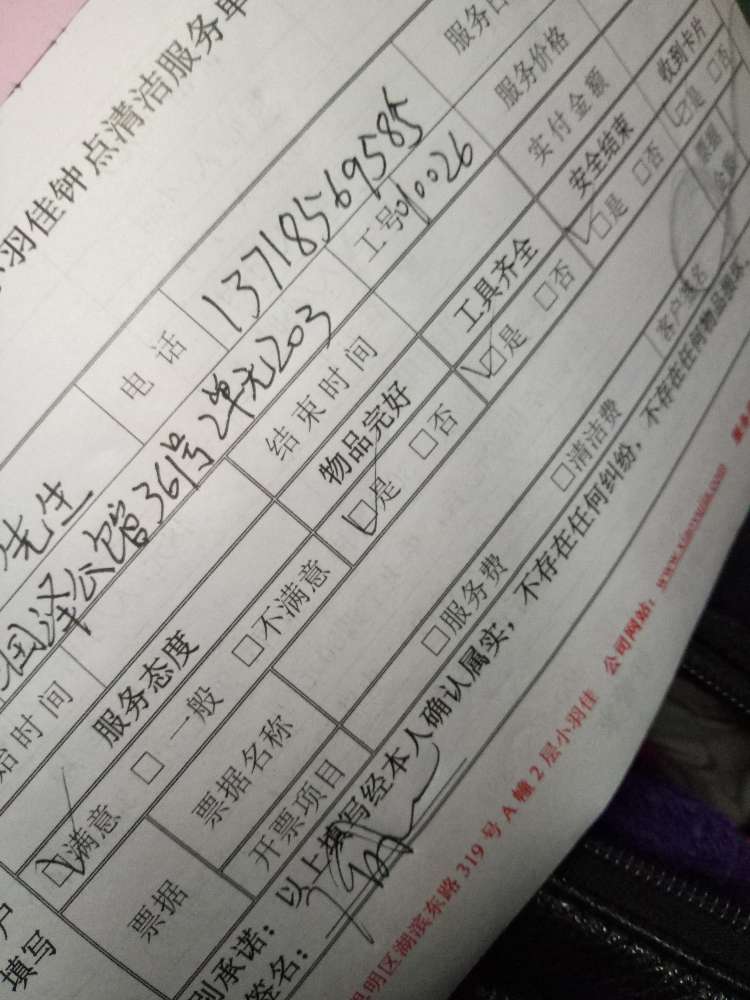 羽佳钟点清洁服务单
先生 电话 13718569585 服务日
润泽公馆361号2单元203 工号010026 服务价格
始时间 结束时间 实付金额
服务态度 物品完好 工具齐全 安全结束 收到卡片
☑满意 □一般 □不满意 ☑是 □否 ☑是 □否 ☑是 □否 ☑是 □否
户填写
票据 票据名称 票据金额
开票项目 □服务费 □清洁费 客户签名
别承诺：以上填写经本人确认属实，不存在任何纠纷，不存在任何物品损坏。
签名：
思明区湖滨东路319号A幢2层小羽佳 公司网站：www.xiaoyujia.com